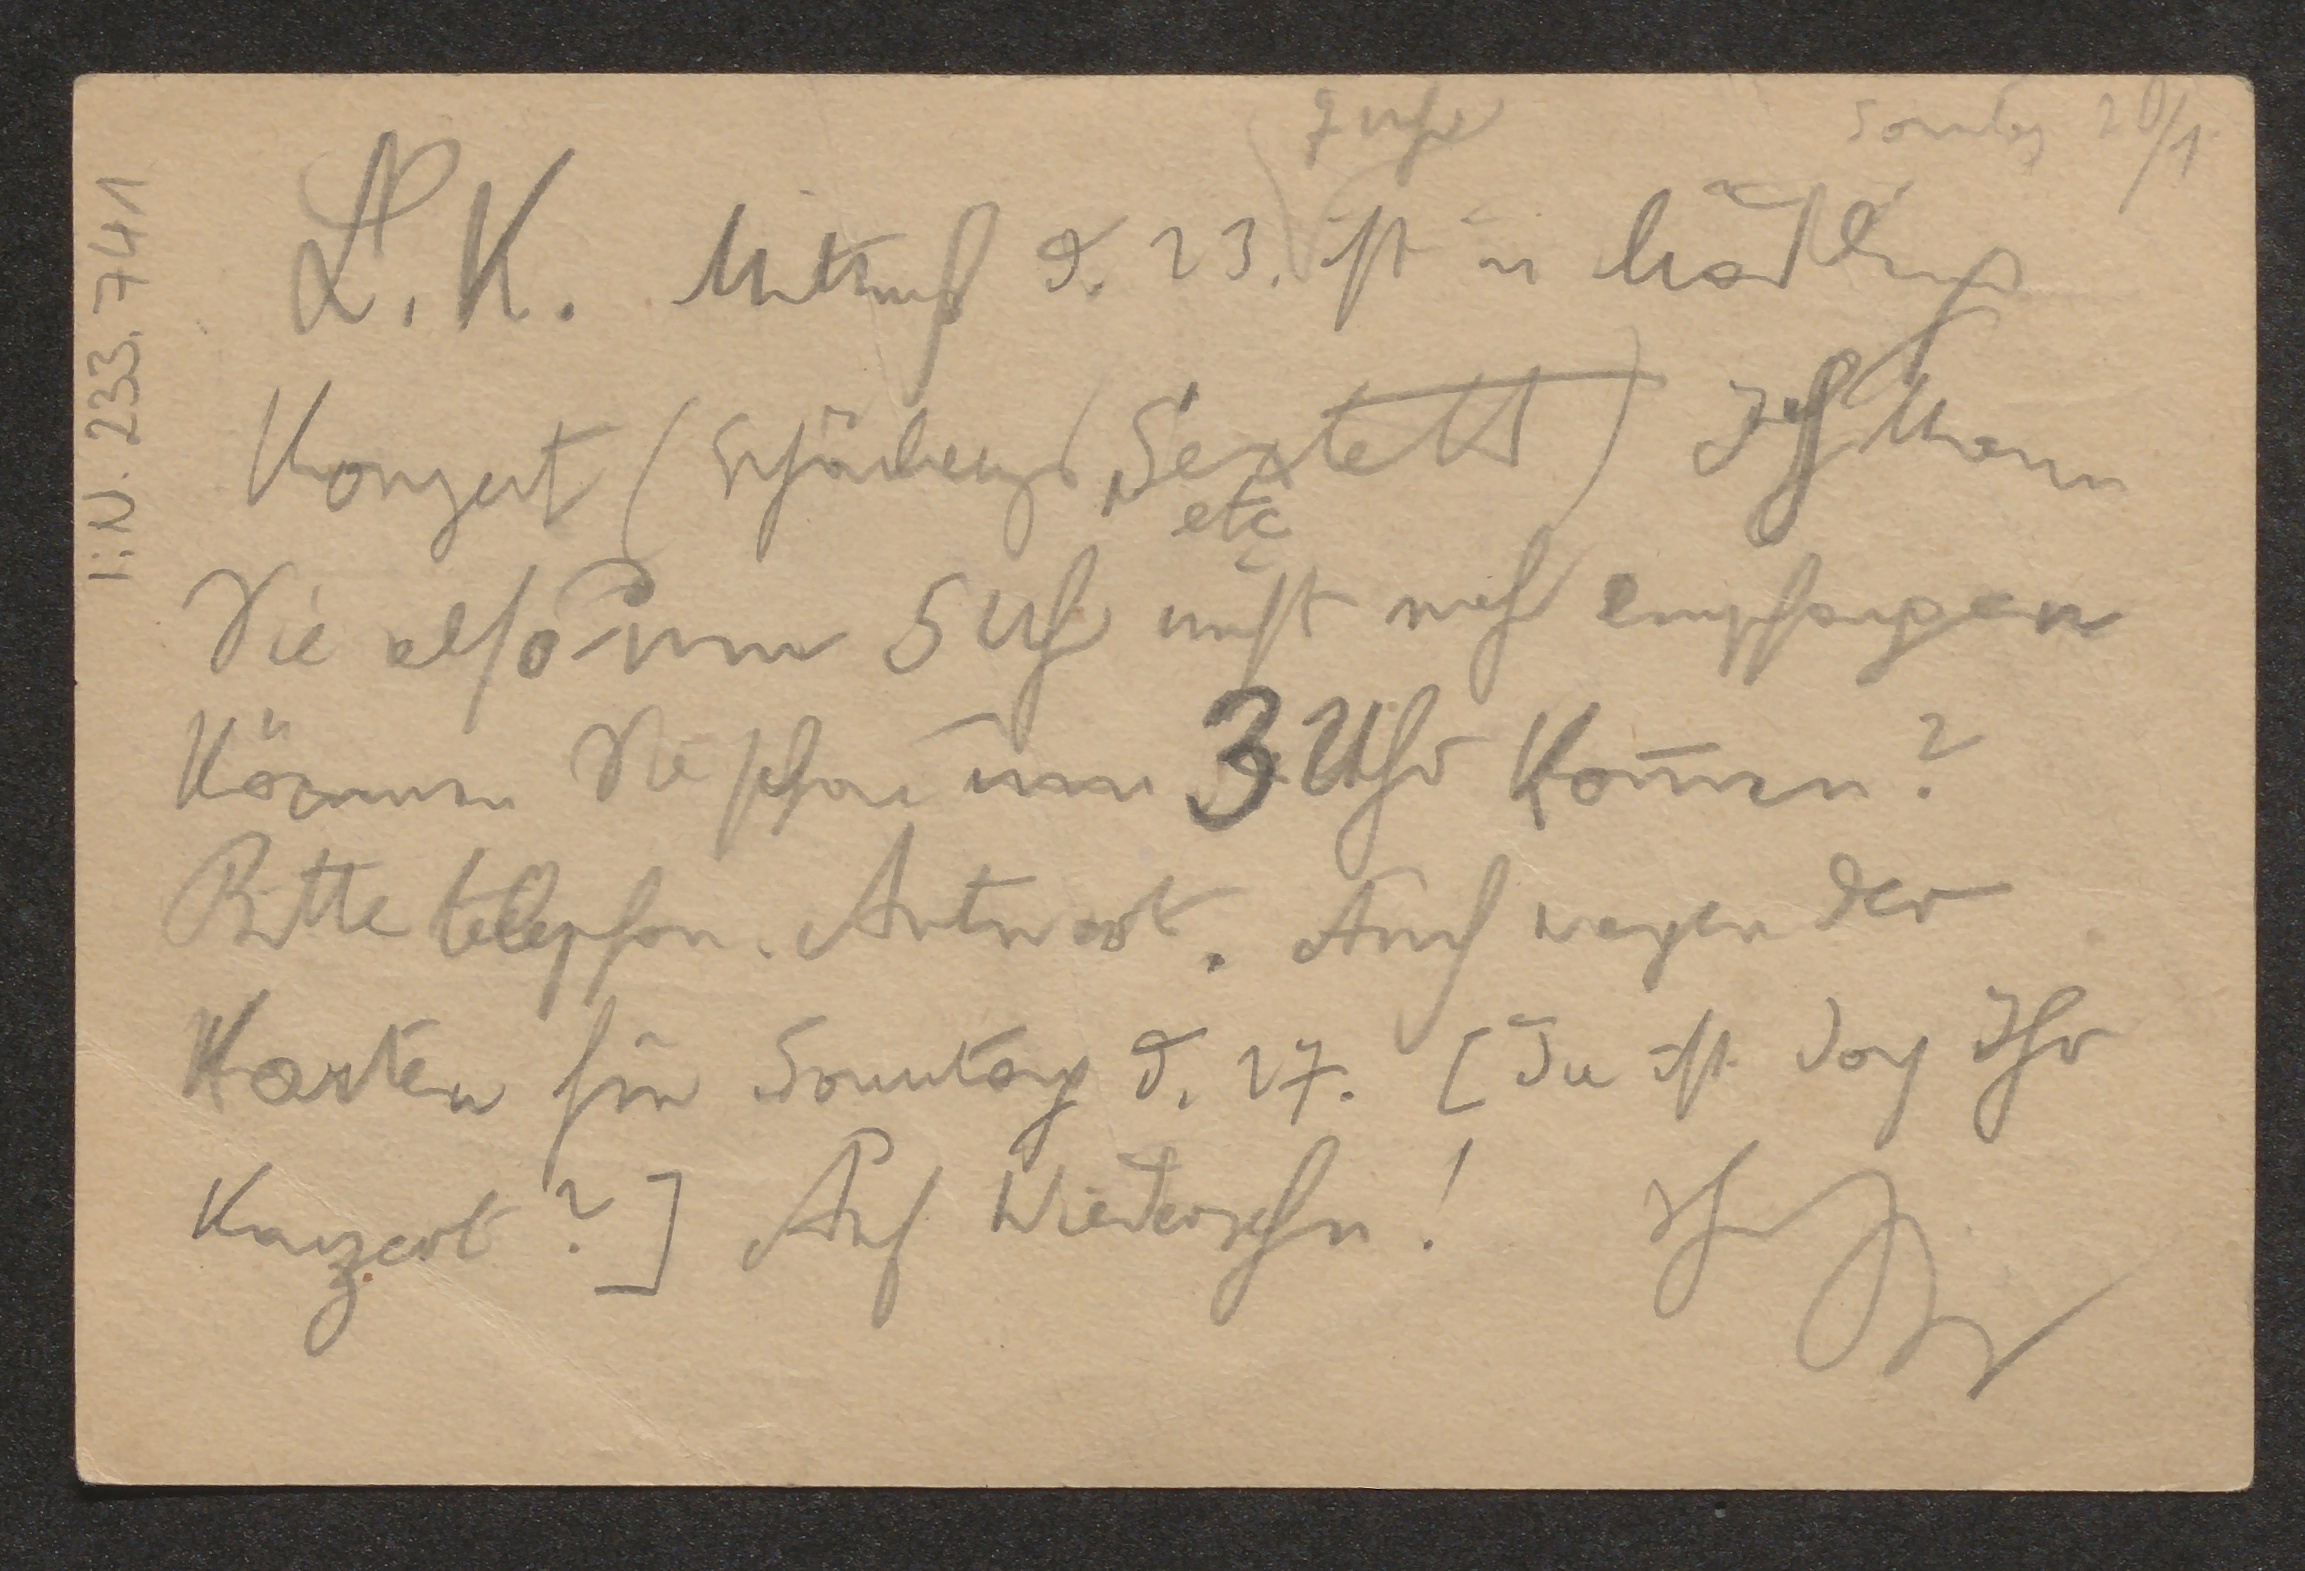 Sonntag 20/1.
7 Uhr
L. K. Mittwoch d. 23. ist in Mödling
Konzert (Schönbergs Sextett etc) Ich kann
Sie also um 5 Uhr nicht mehr empfangen
Können Sie schon um 3 Uhr kommen?
Bitte telephon. Antwort. Auch wegen der
Karten für Sonntag d. 27. [Da ist doch Ihr
Konzert?] Auf Wiedersehn! Ihr
I.N. 233.741